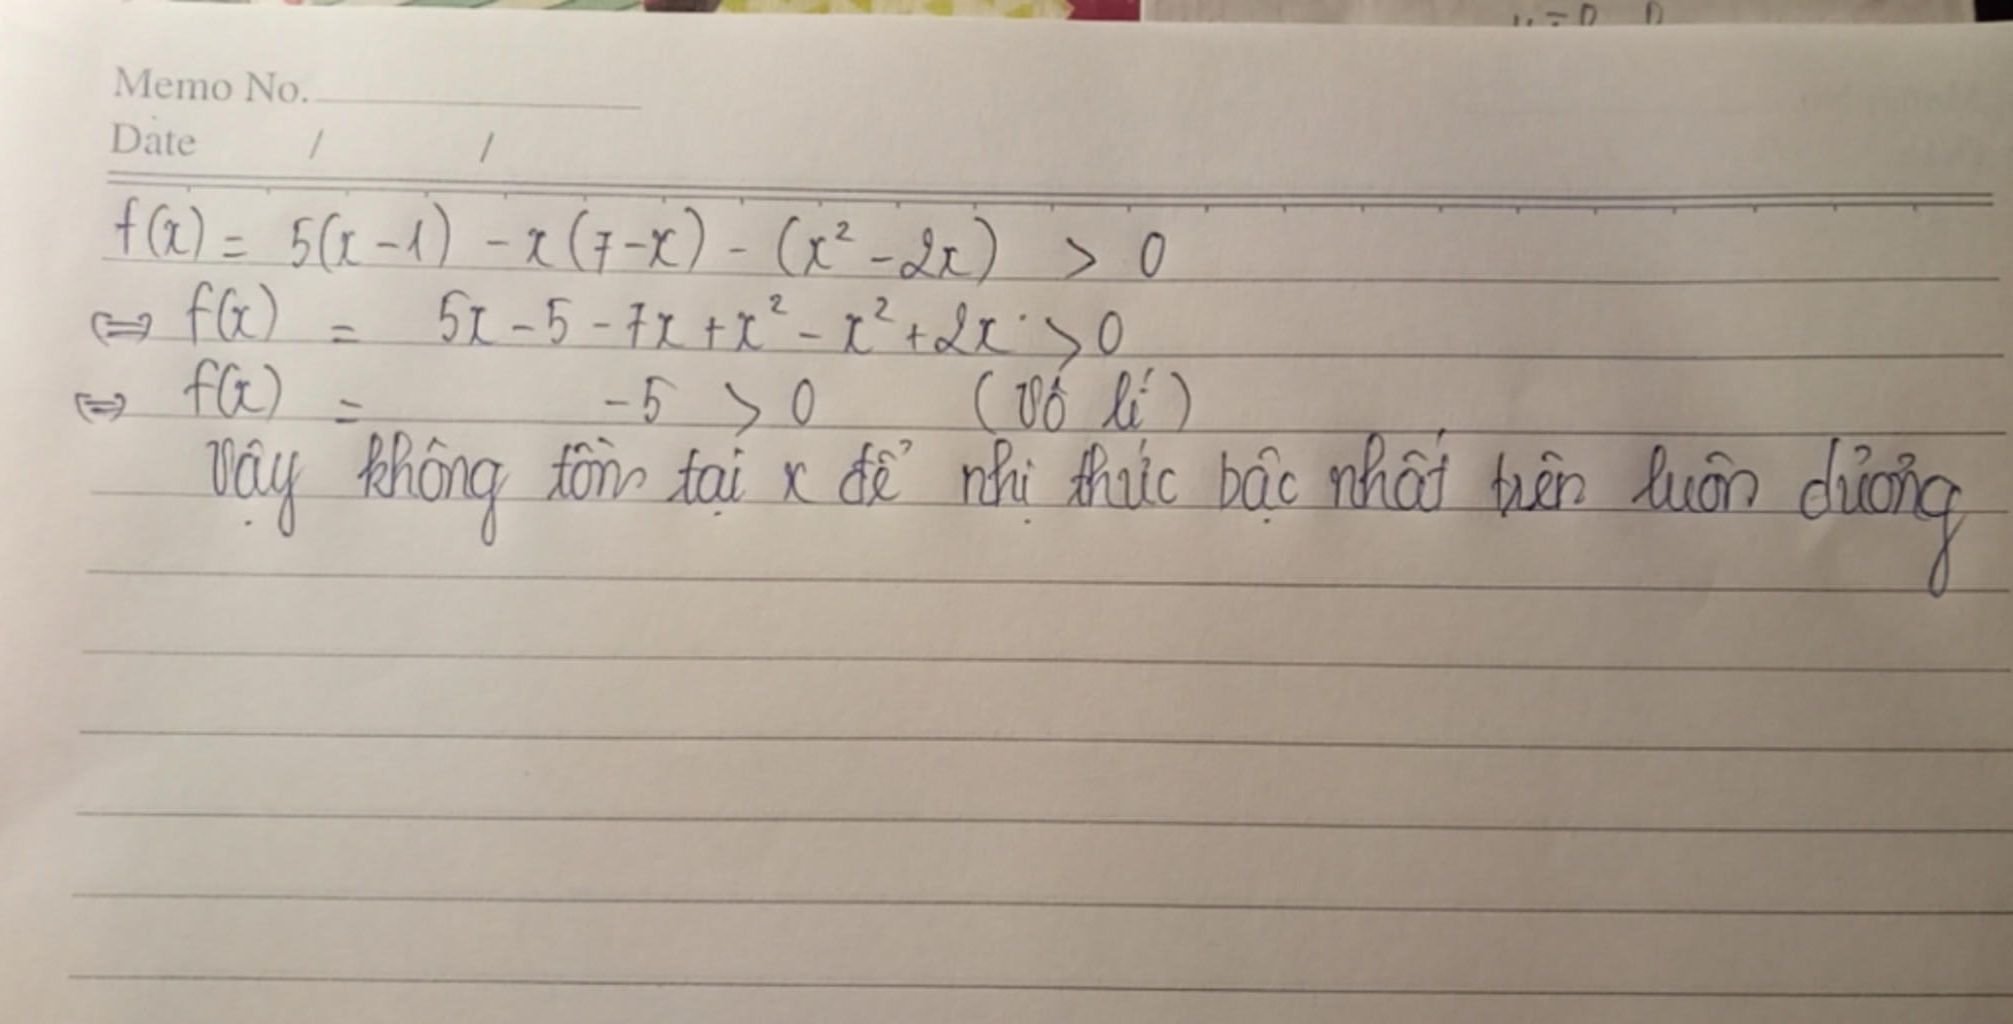 Memo No.
Date / /
f(x) = 5(x-1) - x(7-x) - (x² - 2x) > 0
⇔ f(x) = 5x - 5 - 7x + x² - x² + 2x > 0
⇔ f(x) = -5 > 0 (Vô lí)
Vậy không tồn tại x để nhị thức bậc nhất trên luôn dương